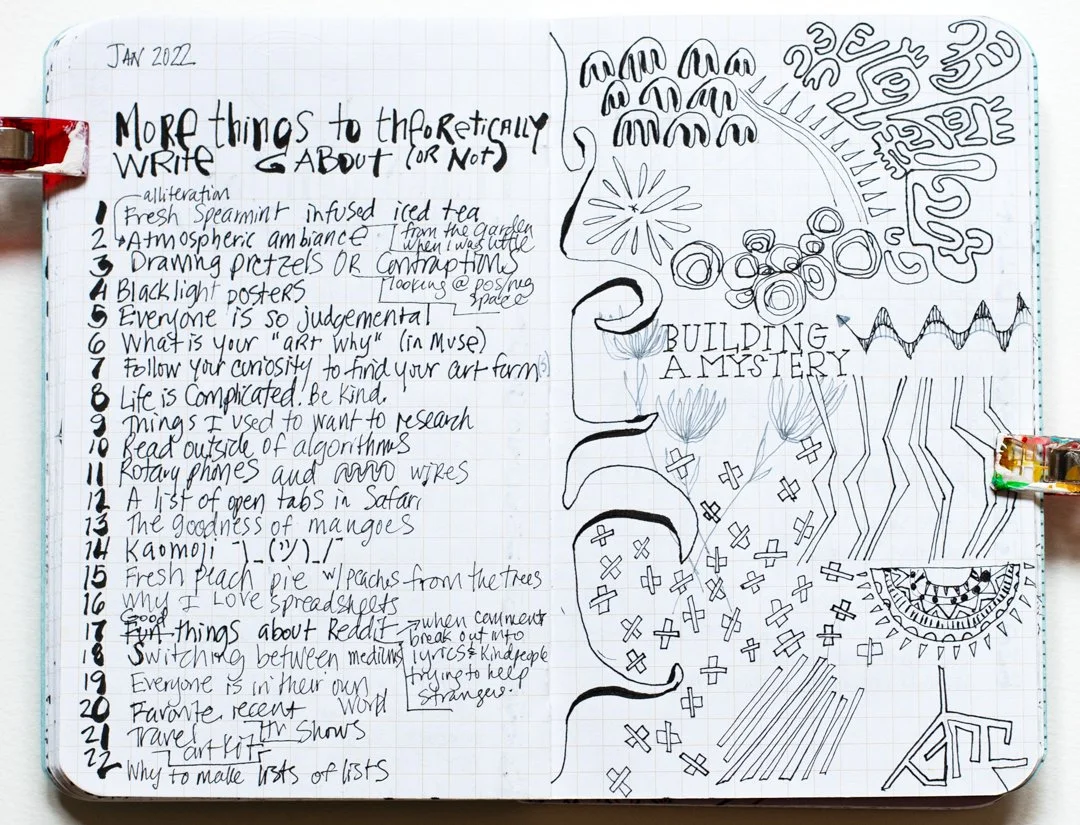 JAN 2022
MORE things to theoRetically
WRite ABOUT (OR NOT)
alliteration
1 Fresh Spearmint infused iced tea
from the garden
when i was little
2 Atmospheric ambiance
3 Drawing pretzels OR Contraptions
looking @ pos/neg
space
4 Blacklight posters
5 Everyone is so judgemental
6 What is your "aRt why" (in Muse)
7 Follow your curiosity to find your art form(s)
8 Life is Complicated. Be Kind.
9 Things I used to want to research
10 Read outside of algorithms
11 Rotary phones and wires
12 A list of open tabs in Safari
13 The goodness of mangoes
14 Kaomoji ¯\_(ツ)_/¯
15 Fresh peach pie w/peaches from the trees
16 Why I Love Spreadsheets
Good
17 Fun things about Reddit
when comments
break out into
lyrics & kind people
trying to help
strangers.
18 Switching between mediums
19 Everyone is in their own
World
20 Favorite recent
TV Shows
21 Travel
art kit
22 Why to make lists of lists
BUILDING
A MYSTERY